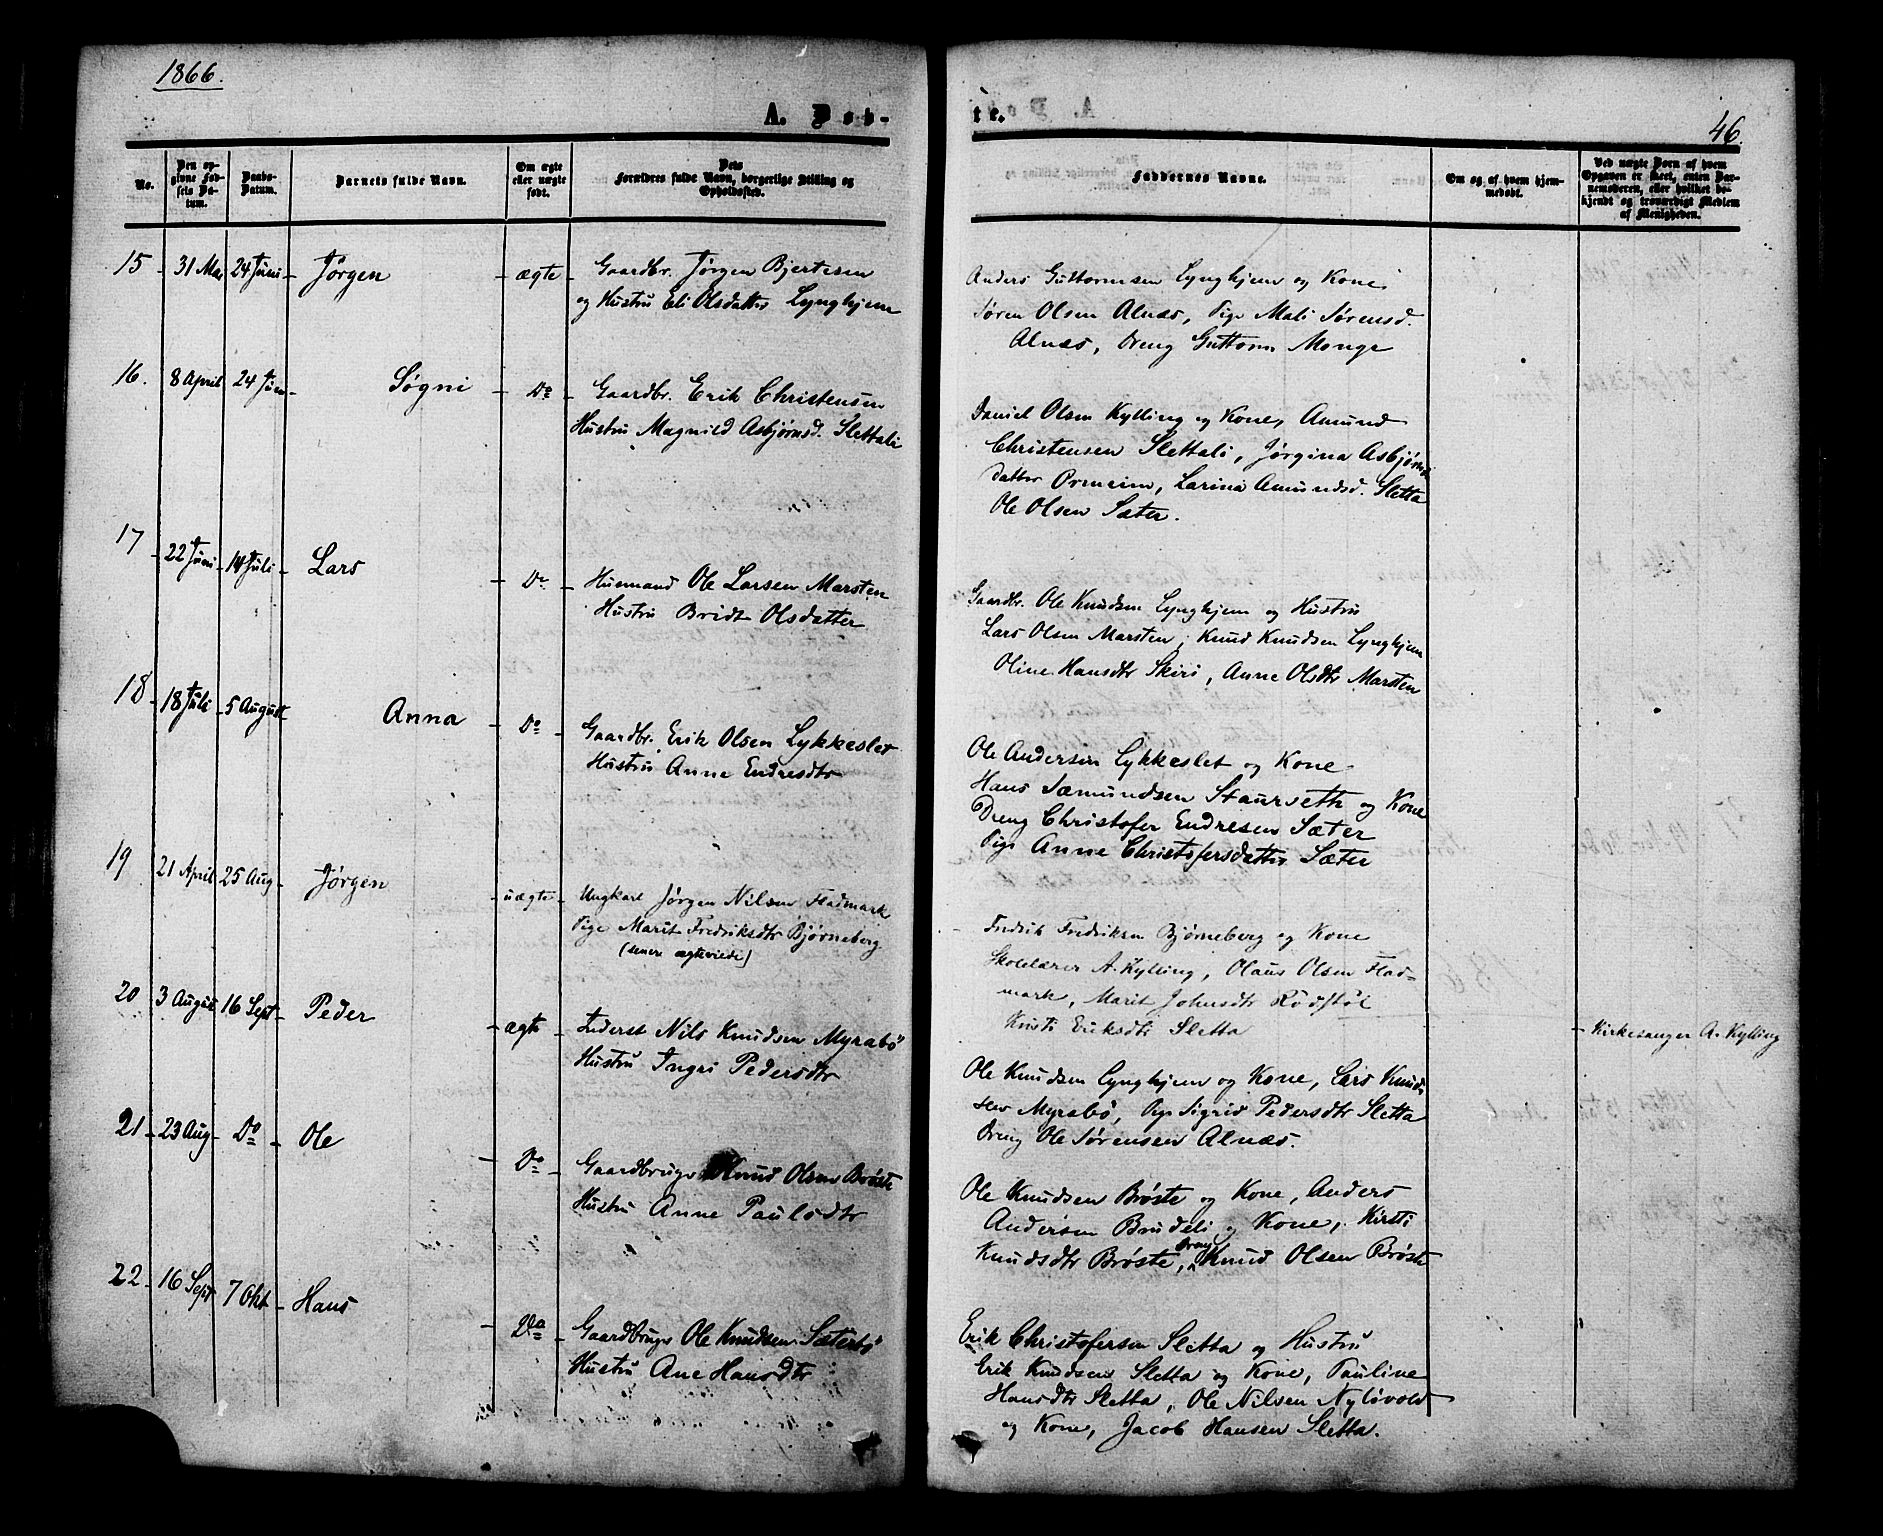 1866.
A. Døb-
No.
Den op-
givne Fød-
sels Da-
tum.
Daabs-
Datum.
Barnets fulde Navn.
Om ægte
eller uægte
født.
Dets
Forældres fulde Navn, borgerlige Stilling og
Opholdssted.
15 31 Mai 24 Juni Jørgen ægte Gaardbr. Jørgen Bjertesen
og Hustru Eli Olsdatter Lynghjem
16. 8 April 24 Juni Søgni Do Gaardbr. Erik Christensen
Hustru Magnild Asbjørnsd. Slettali
17 22 Juni 14 Juli Lars Do Husmand Ole Larsen Marsten
Hustru Bridt Olsdatter
18 18 Juli 5 August Anna Do Gaardbr. Erik Olsen Lykkeslet
Hustru Anne Endresdtr
19 21 April 25 Aug Jørgen uægte Ungkarl Jørgen Nilsen Fladmark
Pige Marit Fredriksdtr Bjørneberg
(senere ægteviede)
20 3 August 16 Sept Peder ægte Inderst Nils Knudsen Myrabö
Hustru Ingri Pedersdtr
21 23 Aug Do Ole Do Gaardbruger Knud Olsen Brøste
Hustru Anne Paulsdtr
22 16 Sept 7 Okt Hans Do Gaardbruger Ole Knudsen Sæterbö
Hustru Ane Hansdtr
te.
46.
Faddernes Navne.
Om og af hvem hjem-
medøbt.
Ved uægte Børn af hvem
Opgaven er skeet, enten Bar-
nemoderen, eller hvilket be-
kjendt og troværdigt Medlem
af Menigheden.
Anders Guttormsen Lynghjem og Kone,
Søren Olsen Alnæs, Pige Mali Sørensd.
Alnæs, Dreng Guttorm Monge
Daniel Olsen Kylling og Kone, Amund
Christensen Slettali, Jørgina Asbjørns
datter Ormeim, Larina Amundsd. Sletta
Ole Olsen Sæter.
Gaardbr. Ole Knudsen Lynghjem og Hustru
Lars Olsen Marsten, Knud Knudsen Lynghjem
Oline Hansdtr Skiri, Anne Olsdtr Marsten
Ole Andersen Lykkeslet og Kone
Hans Sæmundsen Staurseth og Kone
Dreng Christofer Endresen Sæter
Pige Anne Christofersdatter Sæter
Fredrik Fredriksen Bjørneberg og Kone
Skolelærer A. Kylling, Olaus Olsen Flad-
mark, Marit Johnsdtr Rödstöl
Kirsti Eriksdtr Sletta
Kirkesanger A. Kylling
Ole Knudsen Lynghjem og Kone, Lars Knud
sen Myrabö, Pige Sigrid Pedersdtr Sletta
Dreng Ole Sørensen Alnæs.
Ole Knudsen Brøste og Kone, Anders
Andersen Brudeli og Kone, Kirsti
Knudsdtr Brøste, Dreng Knud Olsen Brøste
Erik Christofersen Sletta og Hustru
Erik Knudsen Sletta og Kone, Pauline
Hansdtr Sletta, Ole Nilsen Nyløvold
og Kone, Jacob Hansen Sletta.